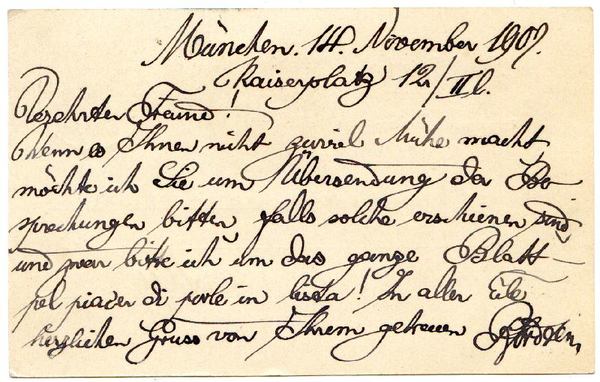 München. 14. November 1907.
Kaiserplatz 12/II l.
Verehrter Freund!
Wenn es Ihnen nicht zuviel Mühe macht
möchte ich Sie um Übersendung der Be-
sprechungen bitten falls solche erschienen sind
und zwar bitte ich um das ganze Blatt –
pel piacer di porle in lista! In aller Eile
herzlichen Gruss von Ihrem getreuen